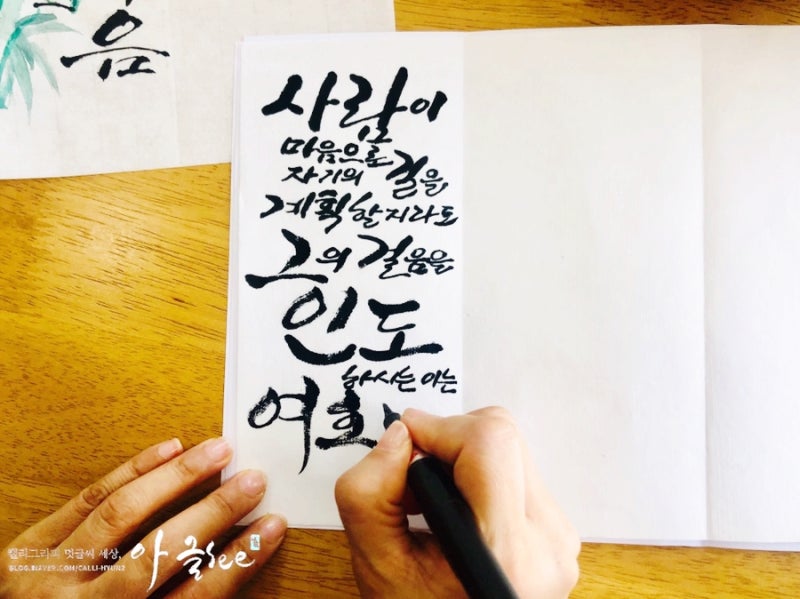 음
사람이
마음으로
자기의 길을
계획할지라도
그의 걸음을
인도
하시는 이는
여호
캘리그라피 멋글씨 세상, 아 글see
BLOG.NAVER.COM/CALLI-HYUN2